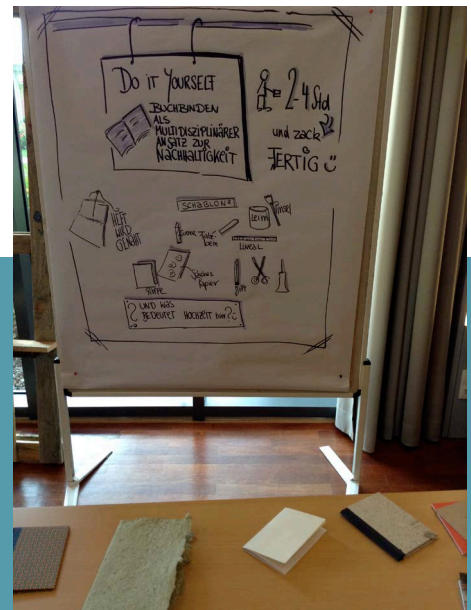 DO IT YOURSELF
BUCHBINDEN
ALS
MULTIDISZIPLINÄRER
ANSATZ ZUR
NACHHALTIGKEIT
2-4 Std
und zack
FERTIG
HEFT
WIRD
GENÄHT
SCHABLONE
Leim
Pinsel
Falz-
bein
LINEAL
PAPPE
Papier
? UND WAS
BEDEUTET HOCHZEIT hier?